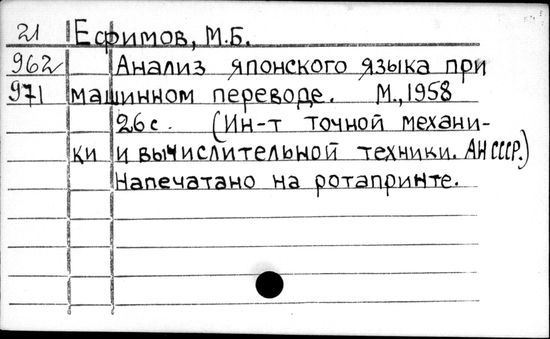 21 Ефимов, М.Б.
962 Анализ японского языка при
971 машинном переводе. М., 1958
26 с. (Ин-т точной механи-
ки и вычислительной техники. АН СССР.)
Напечатано на ротапринте.